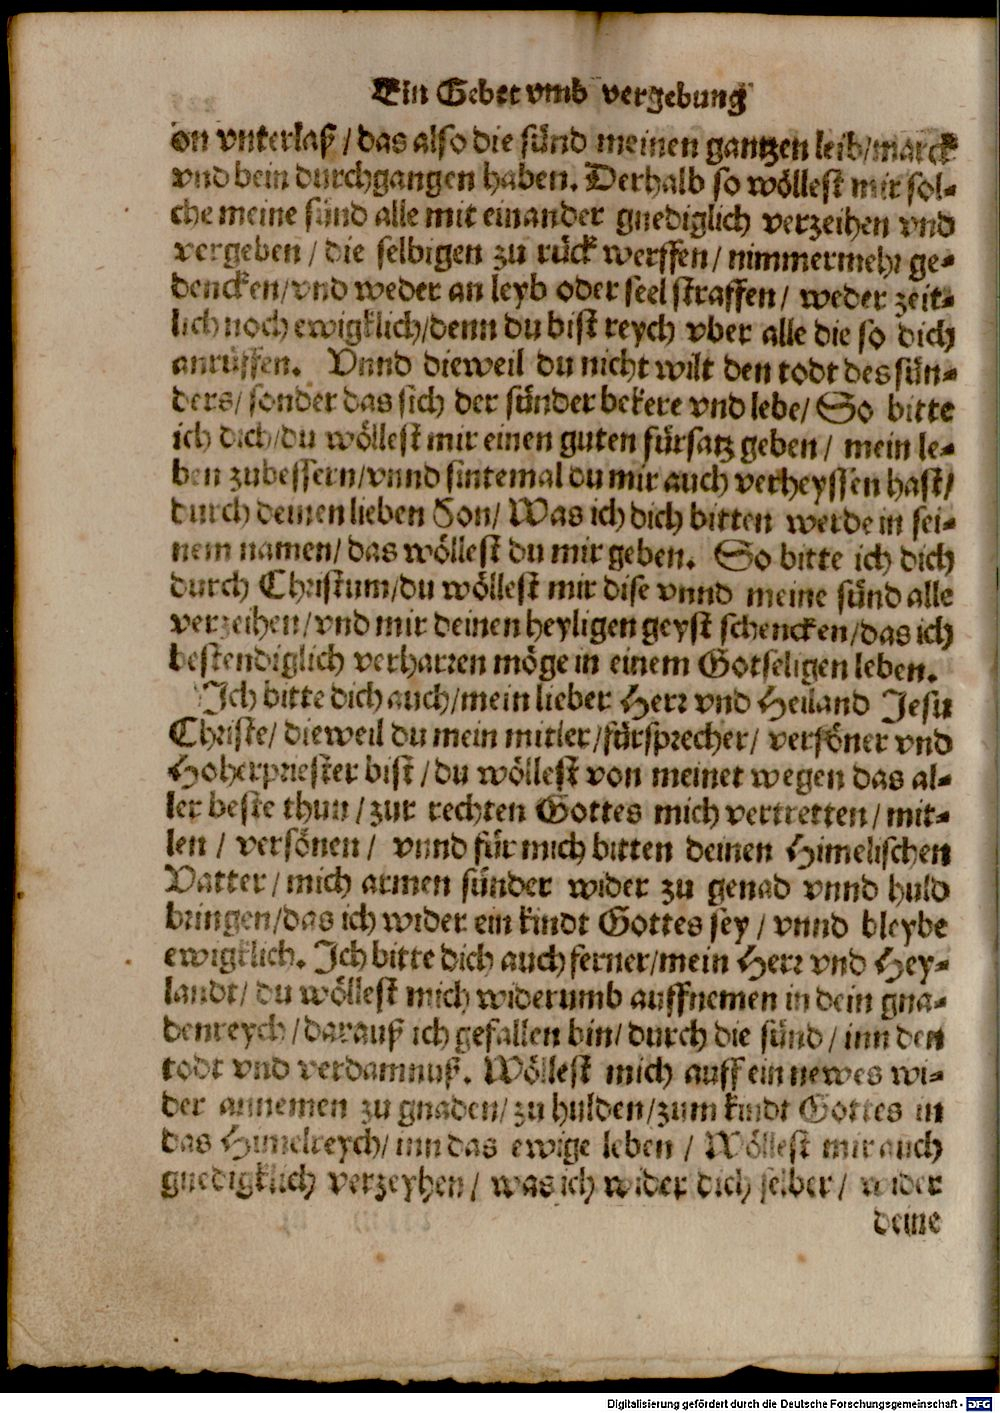 Ein Gebet vmb vergebung
on vnterlaß / das also die sünd meinen gantzen leib/marck
vnd bein durchgangen haben. Derhalb so wöllest mir sol-
che meine sünd alle mit einander gnediglich verzeihen vnd
vergeben / die selbigen zu rück werffen / nimmermehr ge-
dencken/vnd weder an leyb oder seel straffen / weder zeit-
lich noch ewigklich/denn du bist reych vber alle die so dich
anrüffen. Vnnd dieweil du nicht wilt den todt des sün-
ders/ sonder das sich der sünder bekere vnd lebe/ So bitte
ich dich/du wöllest mir einen guten fürsatz geben / mein le-
ben zubessern/vnnd sintemal du mir auch verheyssen hast/
durch deinen lieben Son/ Was ich dich bitten werde in sei-
nem namen/ das wöllest du mir geben. So bitte ich dich
durch Christum/du wöllest mir dise vnnd meine sünd alle
verzeihen/vnd mir deinen heyligen geyst schencken/das ich
bestendiglich verharren möge in einem Gotseligen leben.
Ich bitte dich auch/mein lieber Herr vnd Heiland Jesu
Christe/ dieweil du mein mitler/fürsprecher/ versöner vnd
Hoherpriester bist / du wöllest von meinet wegen das al-
ler beste thun / zur rechten Gottes mich vertretten / mit-
len / versönen / vnnd für mich bitten deinen Himelischen
Vatter / mich armen sünder wider zu genad vnnd huld
bringen/das ich wider ein kindt Gottes sey / vnnd bleybe
ewigklich. Ich bitte dich auch ferner/mein Herr vnd Hey-
landt/ du wöllest mich widerumb auffnemen in dein gna-
denreych /darauß ich gefallen bin/ durch die sünd / inn den
todt vnd verdamnuß. Wöllest mich auff ein newes wi-
der annemen zu gnaden/ zu hulden/zum kindt Gottes in
das Himelreych/ inn das ewige leben / Wöllest mir auch
gnedigklich verzeyhen / was ich wider dich selber / wider
deine
Digitalisierung gefördert durch die Deutsche Forschungsgemeinschaft - DFG